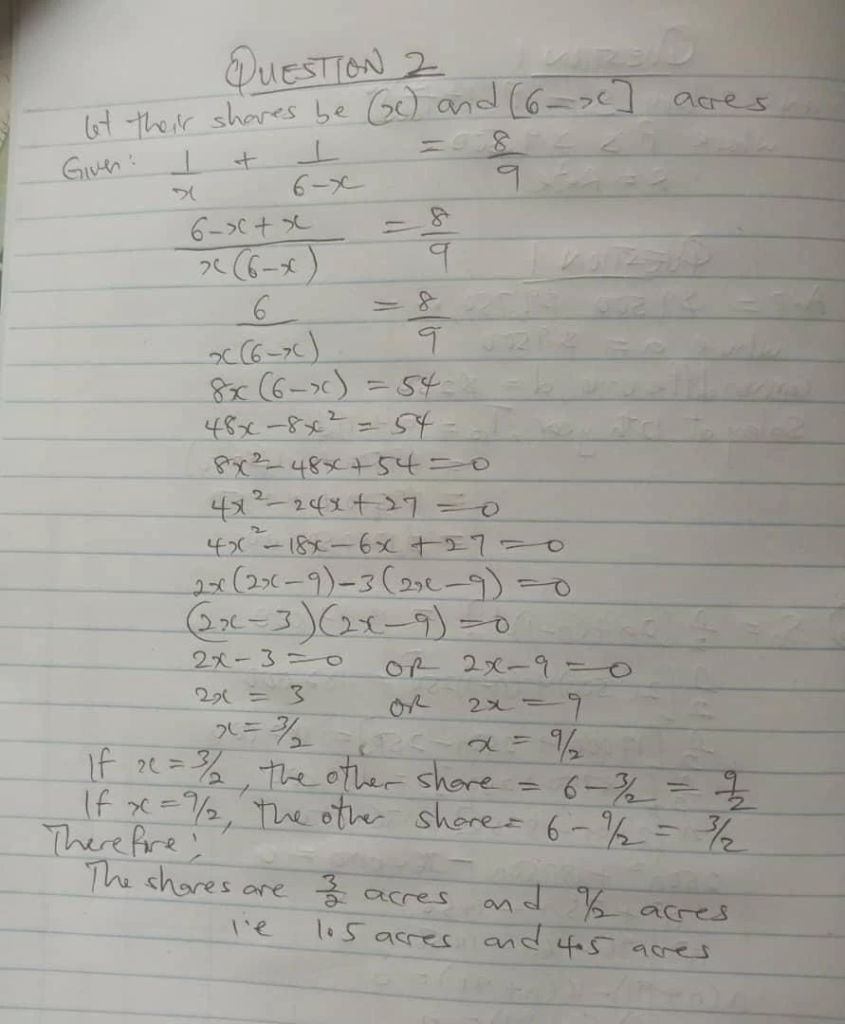 QUESTION 2
let their shares be (x) and [6-x] acres
Given: 1/x + 1/(6-x) = 8/9
(6-x+x)/(x(6-x)) = 8/9
6/(x(6-x)) = 8/9
8x(6-x) = 54
48x-8x² = 54
8x²-48x+54=0
4x²-24x+27=0
4x²-18x-6x+27=0
2x(2x-9)-3(2x-9)=0
(2x-3)(2x-9)=0
2x-3=0 OR 2x-9=0
2x = 3 OR 2x = 9
x=3/2 x = 9/2
If x=3/2, the other share = 6-3/2 = 9/2
If x=9/2, the other share = 6-9/2 = 3/2
Therefore;
The shares are 3/2 acres and 9/2 acres
i.e 1.5 acres and 4.5 acres